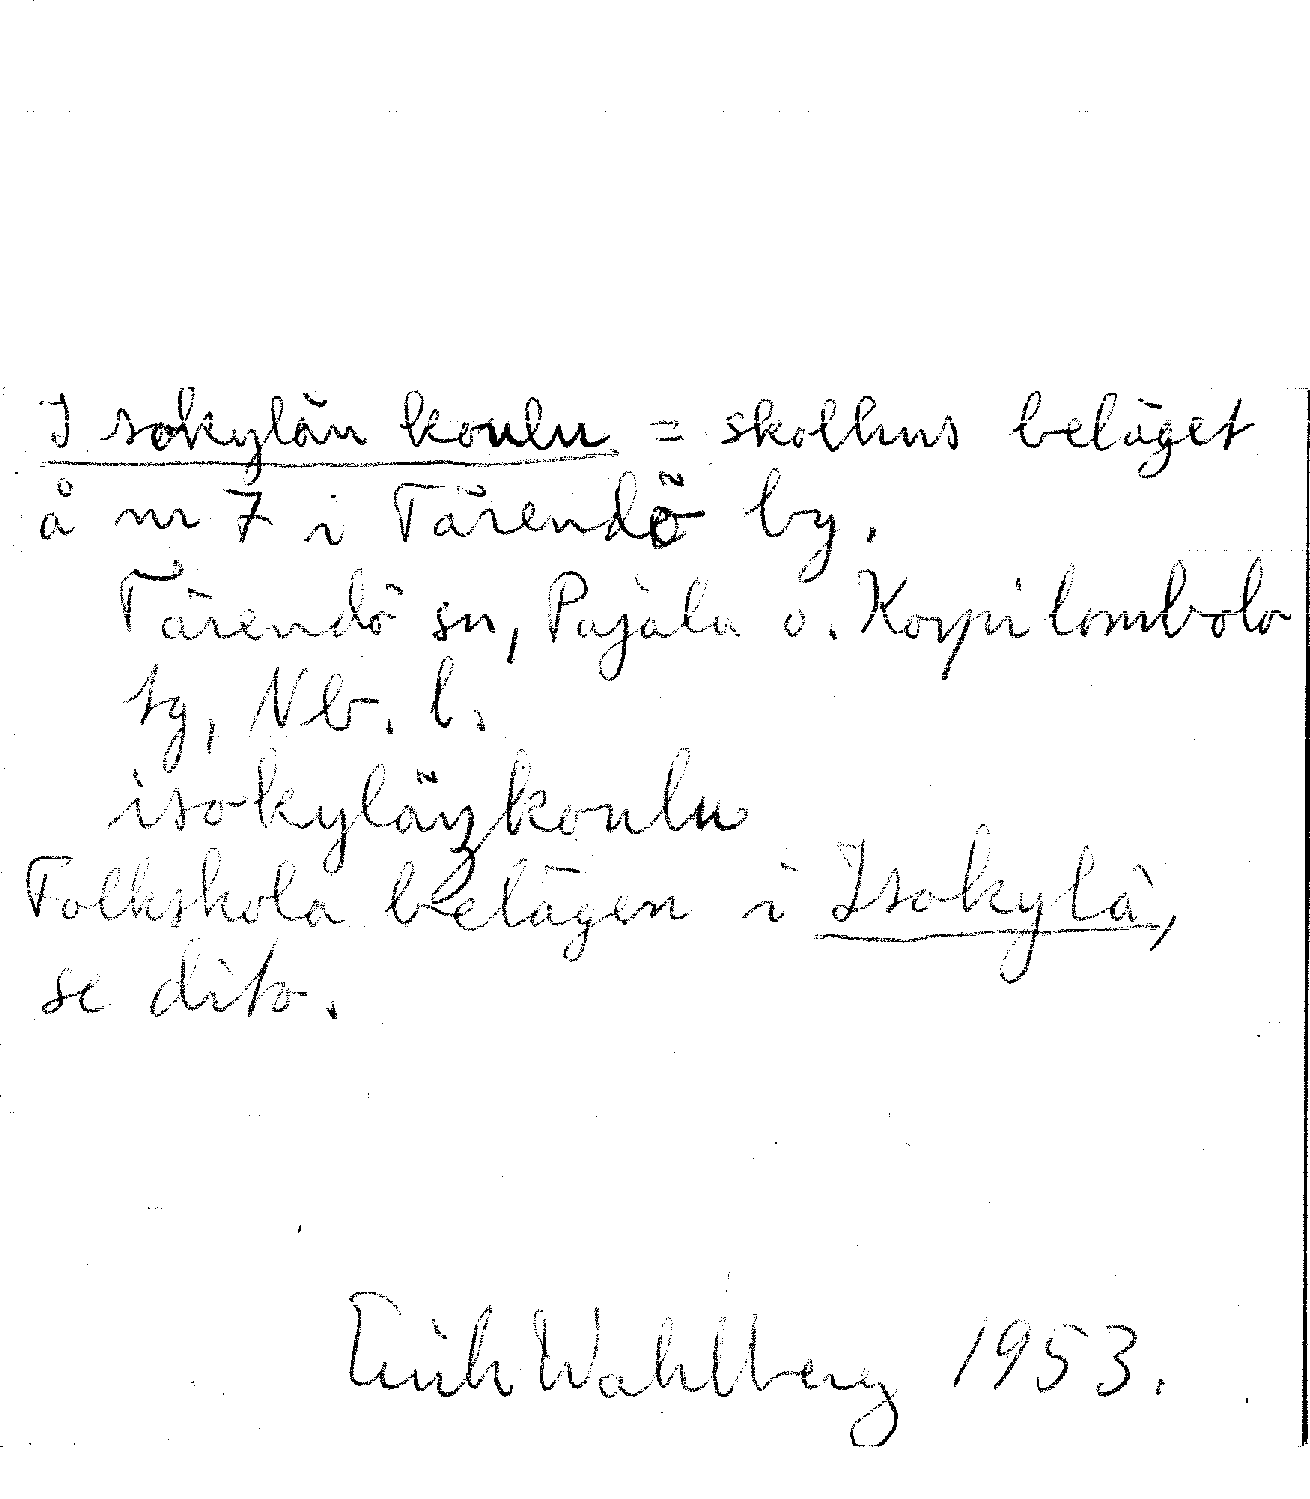 Isokylän koulu = skolhus beläget
å nr 7 i Tärendö by.
Tärendö sn, Pajala o. Korpilombolo
tg, Nb. l.
isokyläŋkoulu
Folkskola belägen i Isokylä,
se dito.
Erik Wahlberg 1953.